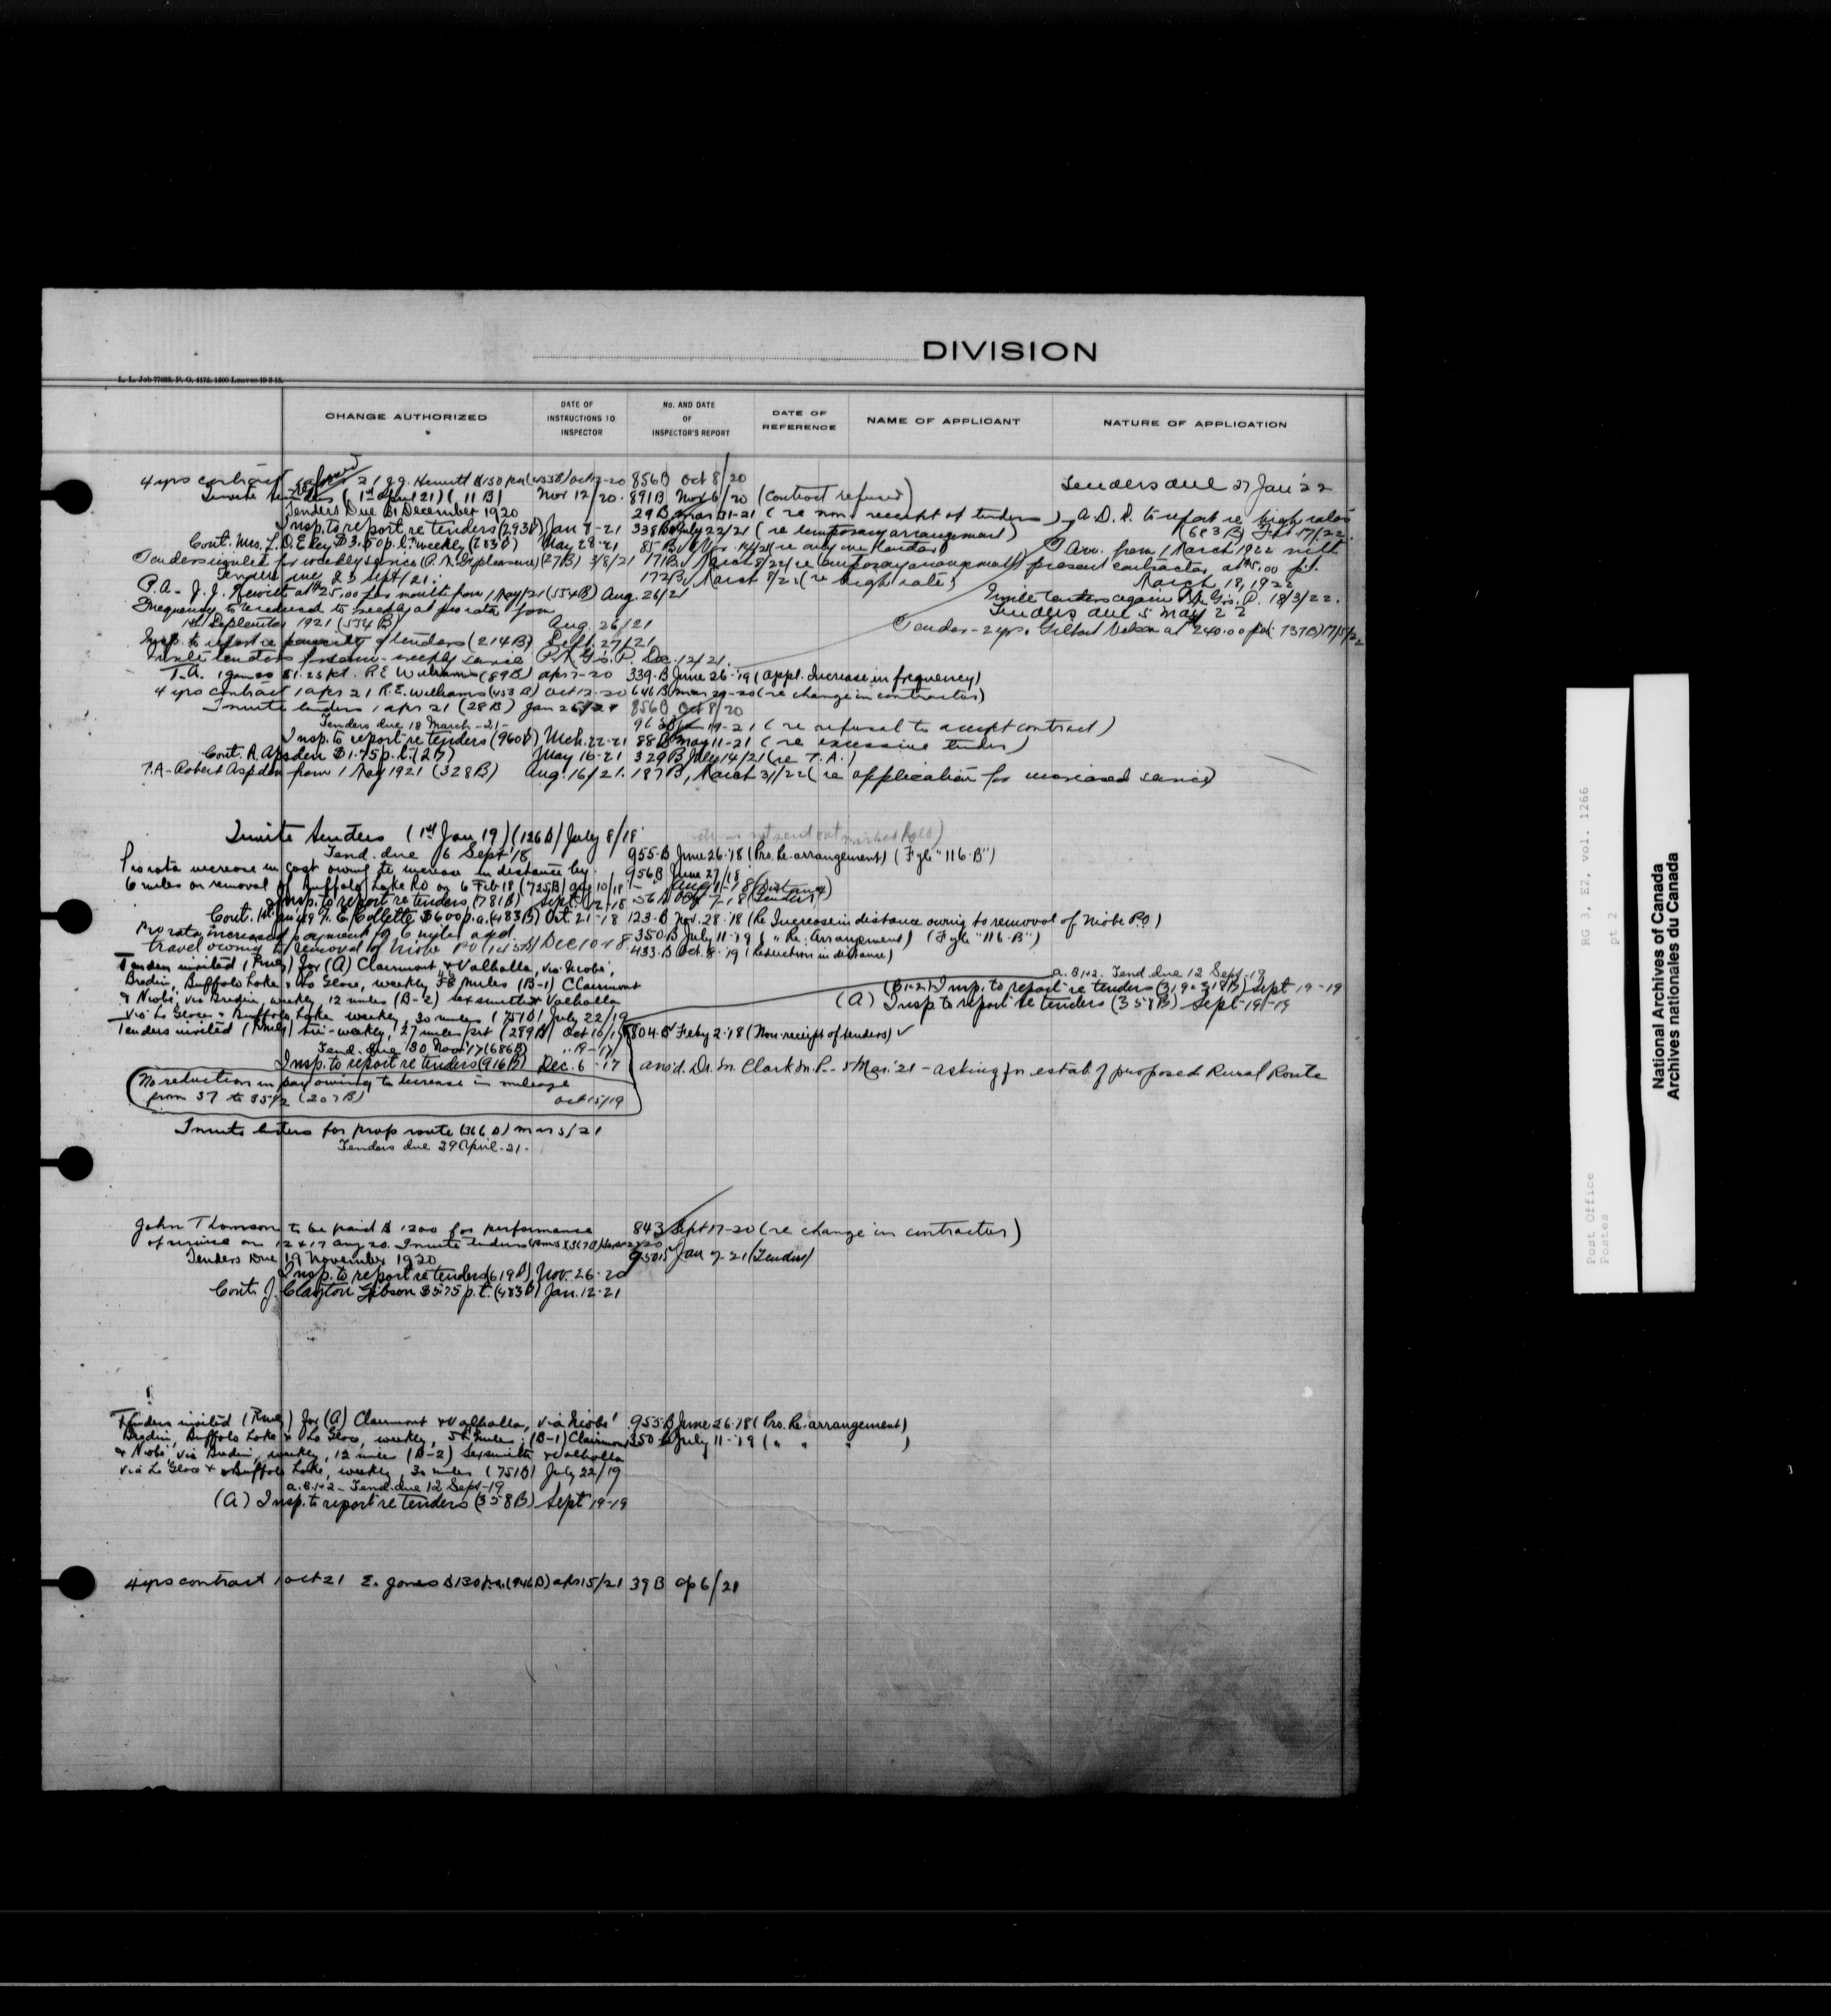 DIVISION
L. L. Job 77093, P. O. 4175, 1500 Leaves 19-8-15.
CHANGE AUTHORIZED
DATE OF INSTRUCTIONS TO INSPECTOR
No. AND DATE OF INSPECTOR'S REPORT
DATE OF REFERENCE
NAME OF APPLICANT
NATURE OF APPLICATION
4 yrs contract 21 J.J. Hewitt $130 pa Oct 12-20 856B Oct 8/20
Tenders due 27 Jan '22
Invite tenders (1st April 21) (11B) Nov 12/20. 891B Nov 6/20 (Contract refused)
Tenders Due 31 December 1920 29B Mar 31-21 (re non receipt of tenders) A.D.S. to report re high rates
Insp. to report re tenders (293B) Jan 7-21 338B July 22/21 (re temporary arrangement) (683B) Feb 17/22.
Cont. Mrs. L. O. Eley $3.50 p.t. weekly (283B) May 28-21 85B (re only one tender) Arr. from 1 March 1922 with
Tenders invited for weekly service (27B) 3/8/21 171B March 8/22 (re temporary arrangement) present contractor at $5.00 p.t.
Tenders due 23 Sept/21. 172B March 8/22 (re high rate) March 18, 1922
P.A. - J. J. Hewitt at $25.00 per month from 1 May/21 (554B) Aug. 26/21 Invite tenders again 18/3/22.
Frequency to be reduced to weekly at pro rata from Tenders due 5 May 22
1st September 1921 (554B) Aug. 26/21 Tender - 2 yrs. Gilbert at $240.00 pa. 137B 17/5/22
Insp. to report re paucity of tenders (214B) Sept. 27/21
Invite tenders for semi-weekly service Dec. 12/21.
T.A. $1.25 p.t. R.E. Williams (89B) Apr 7-20 339-B June 26-'19 (Appl. Increase in frequency)
4 yrs contract 1 Apr 21 R.E. Williams (453B) Oct 12-20 646B Mar 29-20 (re change in contractor)
Invite tenders 1 Apr 21 (28B) Jan 26/21 856B Oct 8/20
Tenders due 18 March-21- 19-21 (re refusal to accept contract)
Insp. to report re tenders (960B) Mch. 22-21 88B May 11-21 (re excessive tender)
Cont. R. Aspden $1.75 p.t. (217) May 16-21 329B July 14/21 (re T.A.)
T.A - Robert Aspden from 1 May 1921 (328B) Aug. 16/21. 187B, March 31/22 (re application for increased service)
Invite tenders (1st Jan 19) (126B) July 8/18
Tend. due 6 Sept '18 955-B June 26-'18 (Pro. Re-arrangement) (Fyle "116-B")
Pro rata increase in cost owing to increase in distance by 956B June 27/18
6 miles on removal of Buffalo Lake P.O on 6 Feb 18 (725B) Aug 10/18 (Distance)
Insp. to report re tenders (781B) Sept. 12-18 (Tenders)
Cont. 1st Jan '19 T. E. Collette $600 p.a. (483B) Oct. 21-18 123-B Nov. 28-'18 (Re Increase in distance owing to removal of Niobe P.O)
Pro rata increased payment for 6 miles add. 350-B July 11-'19 ( " Re. Arrangement) (Fyle "116-B")
travel owing to removal of Niobe PO Dec 10 18 433-B Oct. 8-'19 (Reduction in distance)
Tenders invited (Rwg) for (A) Clairmont & Valhalla, via Niobe,
Bredin, Buffalo Lake & La Glace, weekly, 58 miles (B-1) Clairmont a. B 1+2. Tend. due 12 Sept-19
& Niobe, via Bredin, weekly, 12 miles (B-2) Sexsmith & Valhalla (B1-2) Insp. to report re tenders (319-318B) Sept 19-19
via La Glace & Buffalo Lake, weekly, 30 miles (751B) July 22/19 (A) Insp. to report re tenders (358B) Sept-19-19
Tenders invited (Rwg) tri-weekly, 27 miles p.rt (289B) Oct 10/17 804-B Feby 2-'18 (Non receipt of tenders) ✓
Tend. due 30 Nov '17 (686B) " 19-17
Insp. to report re tenders (916B) Dec. 6-17 ans'd. Dr. M. Clark M.P. - 5 Mar. '21 - asking for estab. of proposed Rural Route
No reduction in pay owing to decrease in mileage
from 37 to 35½ (207B) Oct 15/19
Invite tenders for prop route (366B) Mar 3/21
Tenders due 29 April-21.
John Thomson to be paid $1200 for performance 843 Sept 17-20 (re change in contractor)
of service on 12 & 17 Aug 20. Invite tenders
Tenders Due 19 November 1920 950B Jan 7-21 (Tenders)
Insp. to report re tenders (619B) Nov. 26-20
Cont. J. Clayton Gibson $5.75 p.t. (483B) Jan. 12-21
Tenders invited (Rwg) for (A) Clairmont & Valhalla, via Niobe 955-B June 26-'18 (Pro. Re-arrangement)
Bredin, Buffalo Lake & La Glace, weekly, 58 miles; (B-1) Clairmont 350-B July 11-'19 ( " " " )
& Niobe via Bredin, weekly, 12 miles (B-2) Sexsmith & Valhalla
via La Glace & Buffalo Lake, weekly, 30 miles (751B) July 22/19
a. B. 1+2 - Tend. due 12 Sept-19
(A) Insp. to report re tenders (358B) Sept 19-19
4 yrs contract 1 Oct 21 E. Jones $130 p.a. (946B) Apr 15/21 39B Ap 6/21
RG 3, E2, vol. 1266
pt 2
Post Office
Postes
National Archives of Canada
Archives nationales du Canada